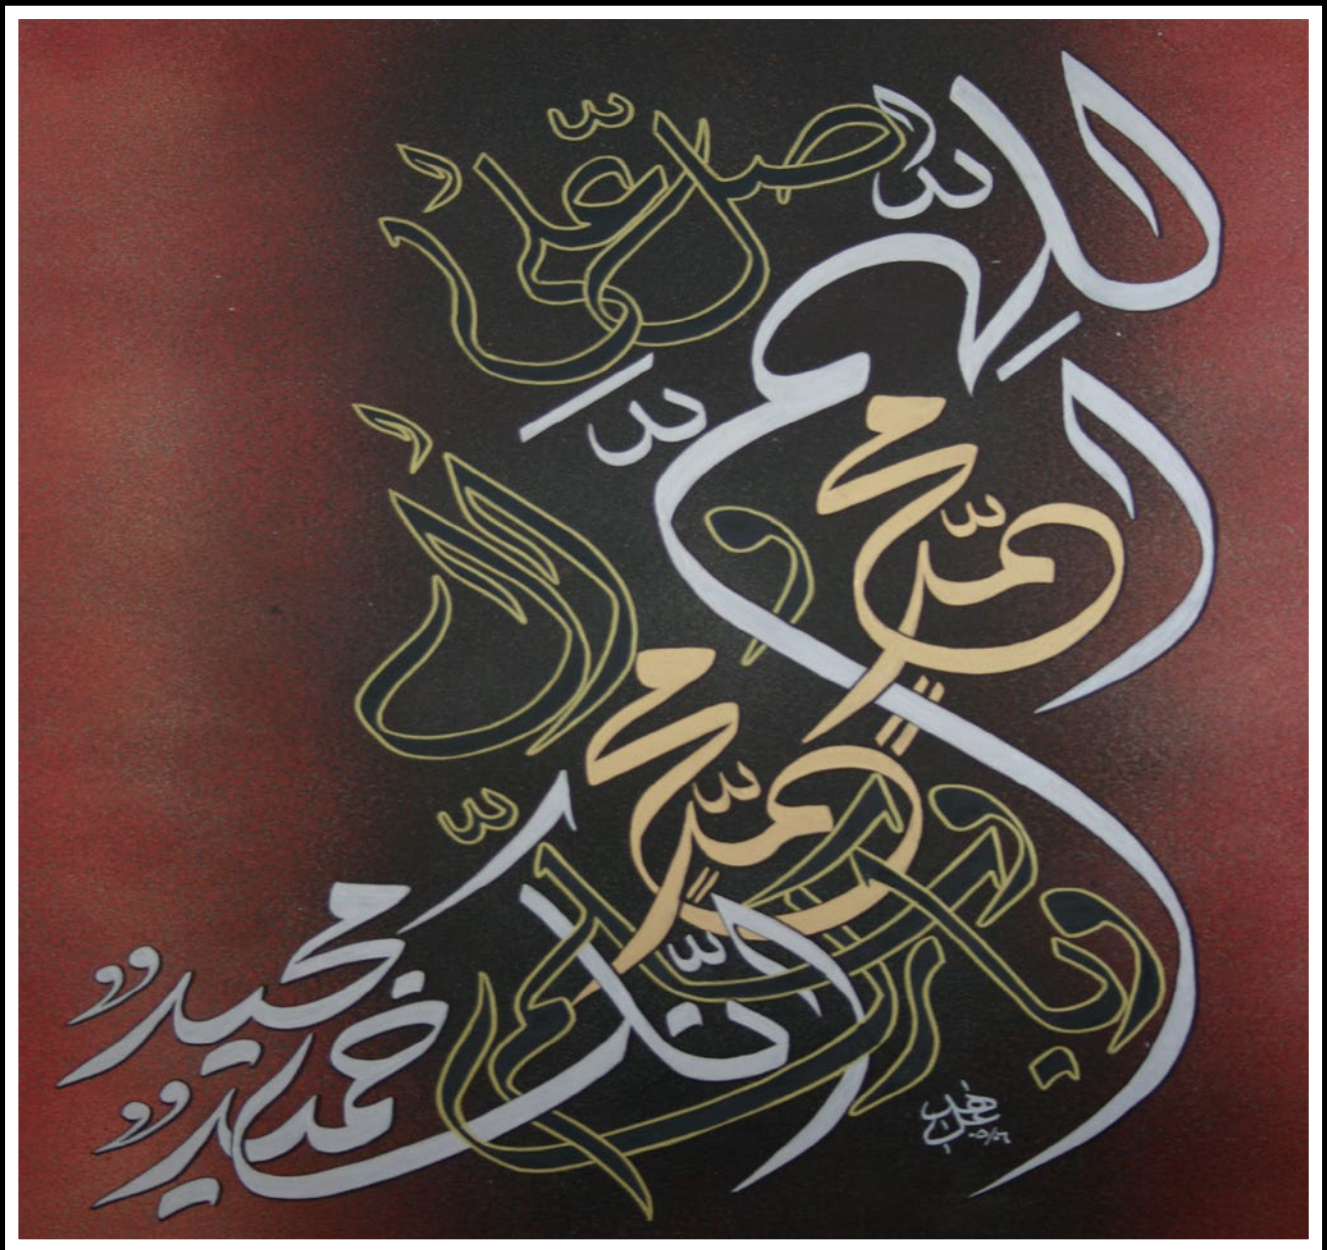 اللّٰهمّ
صلّ علىٰ
محمّدٍ
و اٰل
محمّدٍ
وبارك وسلّم
انّك
حميدٌ
مجيدٌ